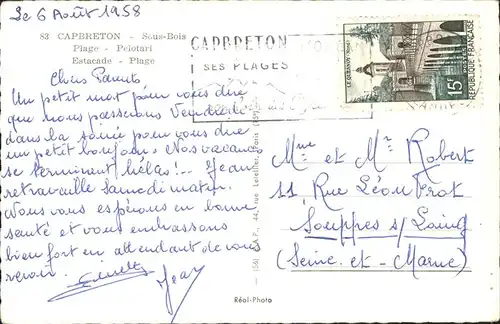 Le 6 Août 1958
83 CAPBRETON - Sous-Bois
Plage - Pelotari
Estacade - Plage
CAPBRETON
SES PLAGES
LE QUESNOY (Nord)
15F
REPUBLIQUE FRANÇAISE
Chers Parents
Un petit mot pour vous dire
que nous passerons Vendredi
dans la soirée pour vous dire
un petit bonjour. Nos vacances
se terminent hélas!.. Jean
retravaille Samedi matin.
Nous vous espérons en bonne
santé et vous embrassons
bien fort en attendant de vous
revoir.
Ginette
Jean
44, rue Letellier, Paris (XV)
Mme et Mr Robert
11, Rue Léon Frot
Souppes s/ Loing
(Seine-et-Marne)
Réal-Photo